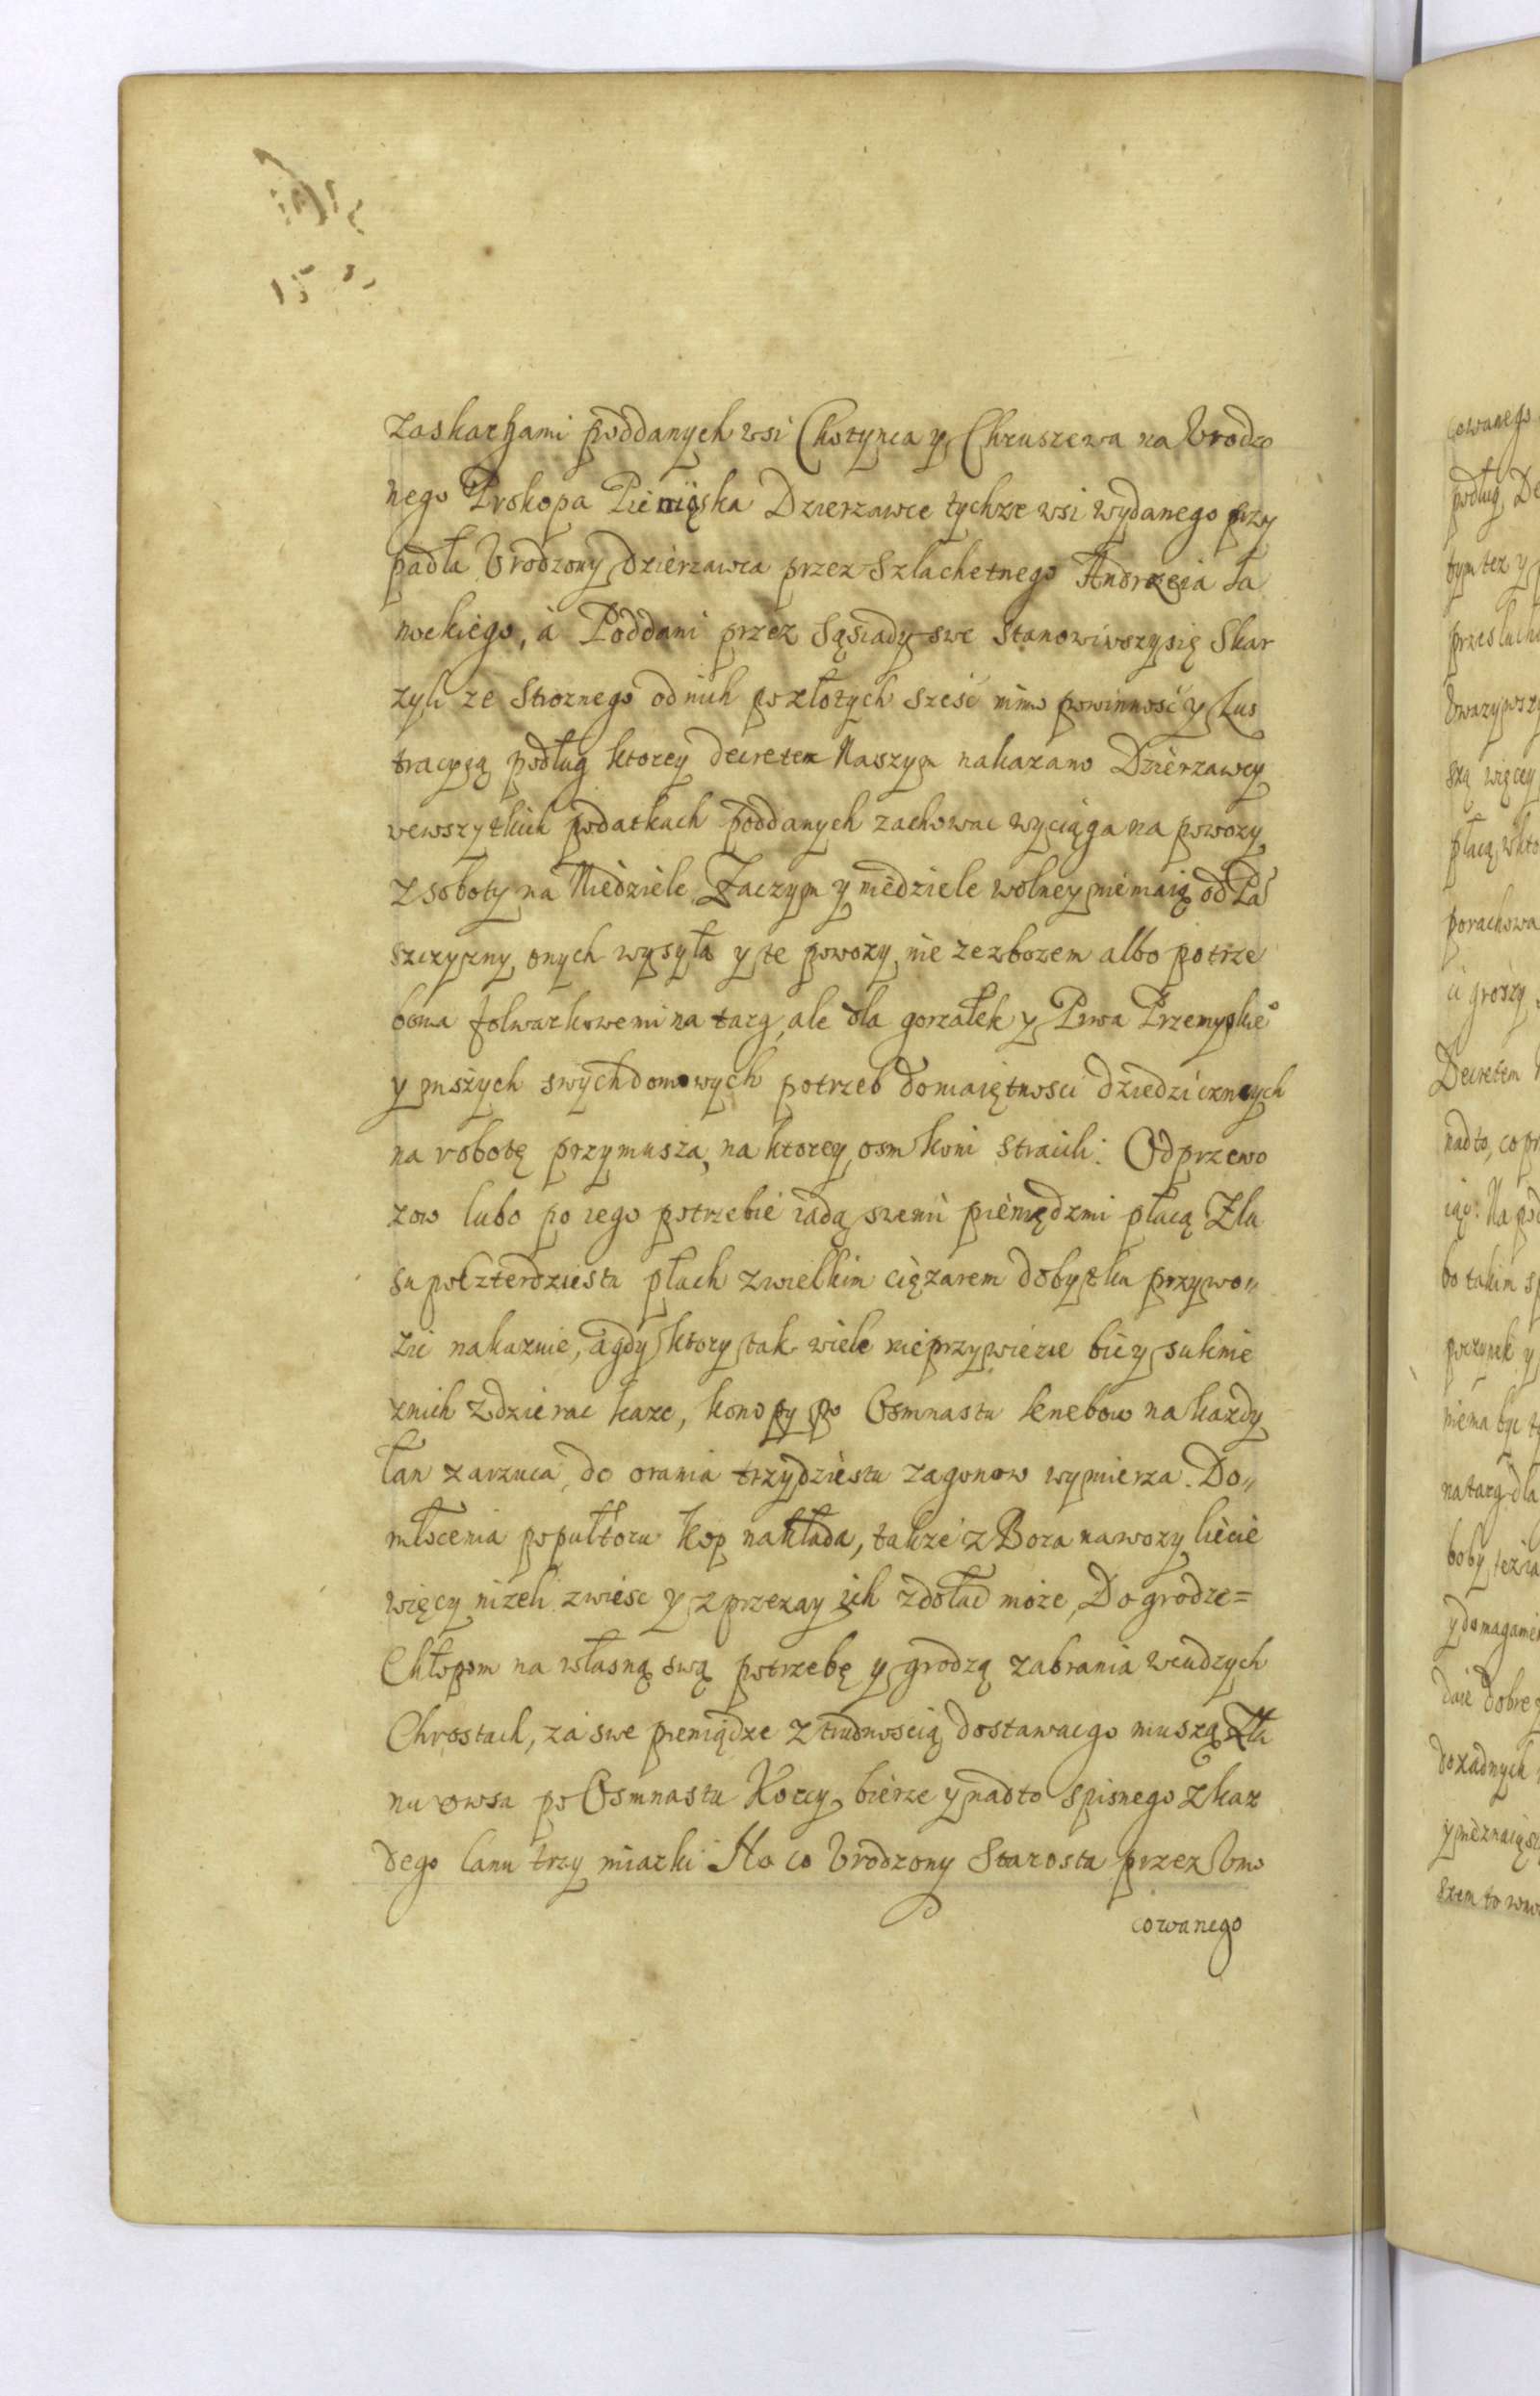 zaskargami poddanych wsi Chotynca y Chruszewa na Urodzo
nego Prokopa Pieniąska Dzierzawce tychze wsi wydanego przy
padła Urodzony Dzierzawca przez Szlachetnego Andrzeia Ła
nockiego, á Poddani przez sąsiady swe stanowiwszysię Skar
zyli ze stroznego odnich pozłotych sześć mimo powinność y Lus
tracyeą podług ktorey decretem Naszym nakazano Dzierzawcy
wewszytkich podatkach poddanych zachowac wyciąga na powozy
z soboty na Niedziele Zaczym y niedziele wolney niemaią od Pa
szczyzny onych wysyła y te powozy nie zezbozem albo potrze
bowa folwarkowemi na targ, ale dla gorzałek y Piwa Przemyskie°
y inszych swychdomowych potrzeb domaiętnosci dziedzicznych
na robotę przymusza, na ktorey osm koni stracili: Odprzewo
zow lubo po iego potrzebie iadą szemu pieniędzmi płacą Zla
su połczterdziestu płach zwielkim ciężarem dobytku przywo„
zic nakazuie, agdy ktory tak wiele nieprzywiezie bic y suknie
znich zdzierac kaze, konopy po Osmnastu knebow na kazdy
łan zarzuca, do orania trzydziestu zagonow wymierza. Do„
młocenia popułtoru kop nakłada, takze z Bora nawozy liecie
więcy nizeli zwiesc y zprzezay ich zdołac może, Dogrodze=
Chłopom na własną swą potrzebę y grodzą zabrania wcudzych
Chrostach, zá swe pieniądze ztrudnoscią dostawacgo muszą Zła
nu owsa po Osmnastu Korcy bierze y nadto spisnego zkaz
dego lanu trzy miarki Na co Urodzony Starosta przez Umo
cowanego
cowanego
podług De
tym tez y
Uwazywszy
szą więcey
płacą, wkto
porachowa
ci groszy
Decretem
nadto, co pr
bo takim sp
poczynek y
niema byc
natarg dla
ydomagame
daie dobre
dozadnych
szem to